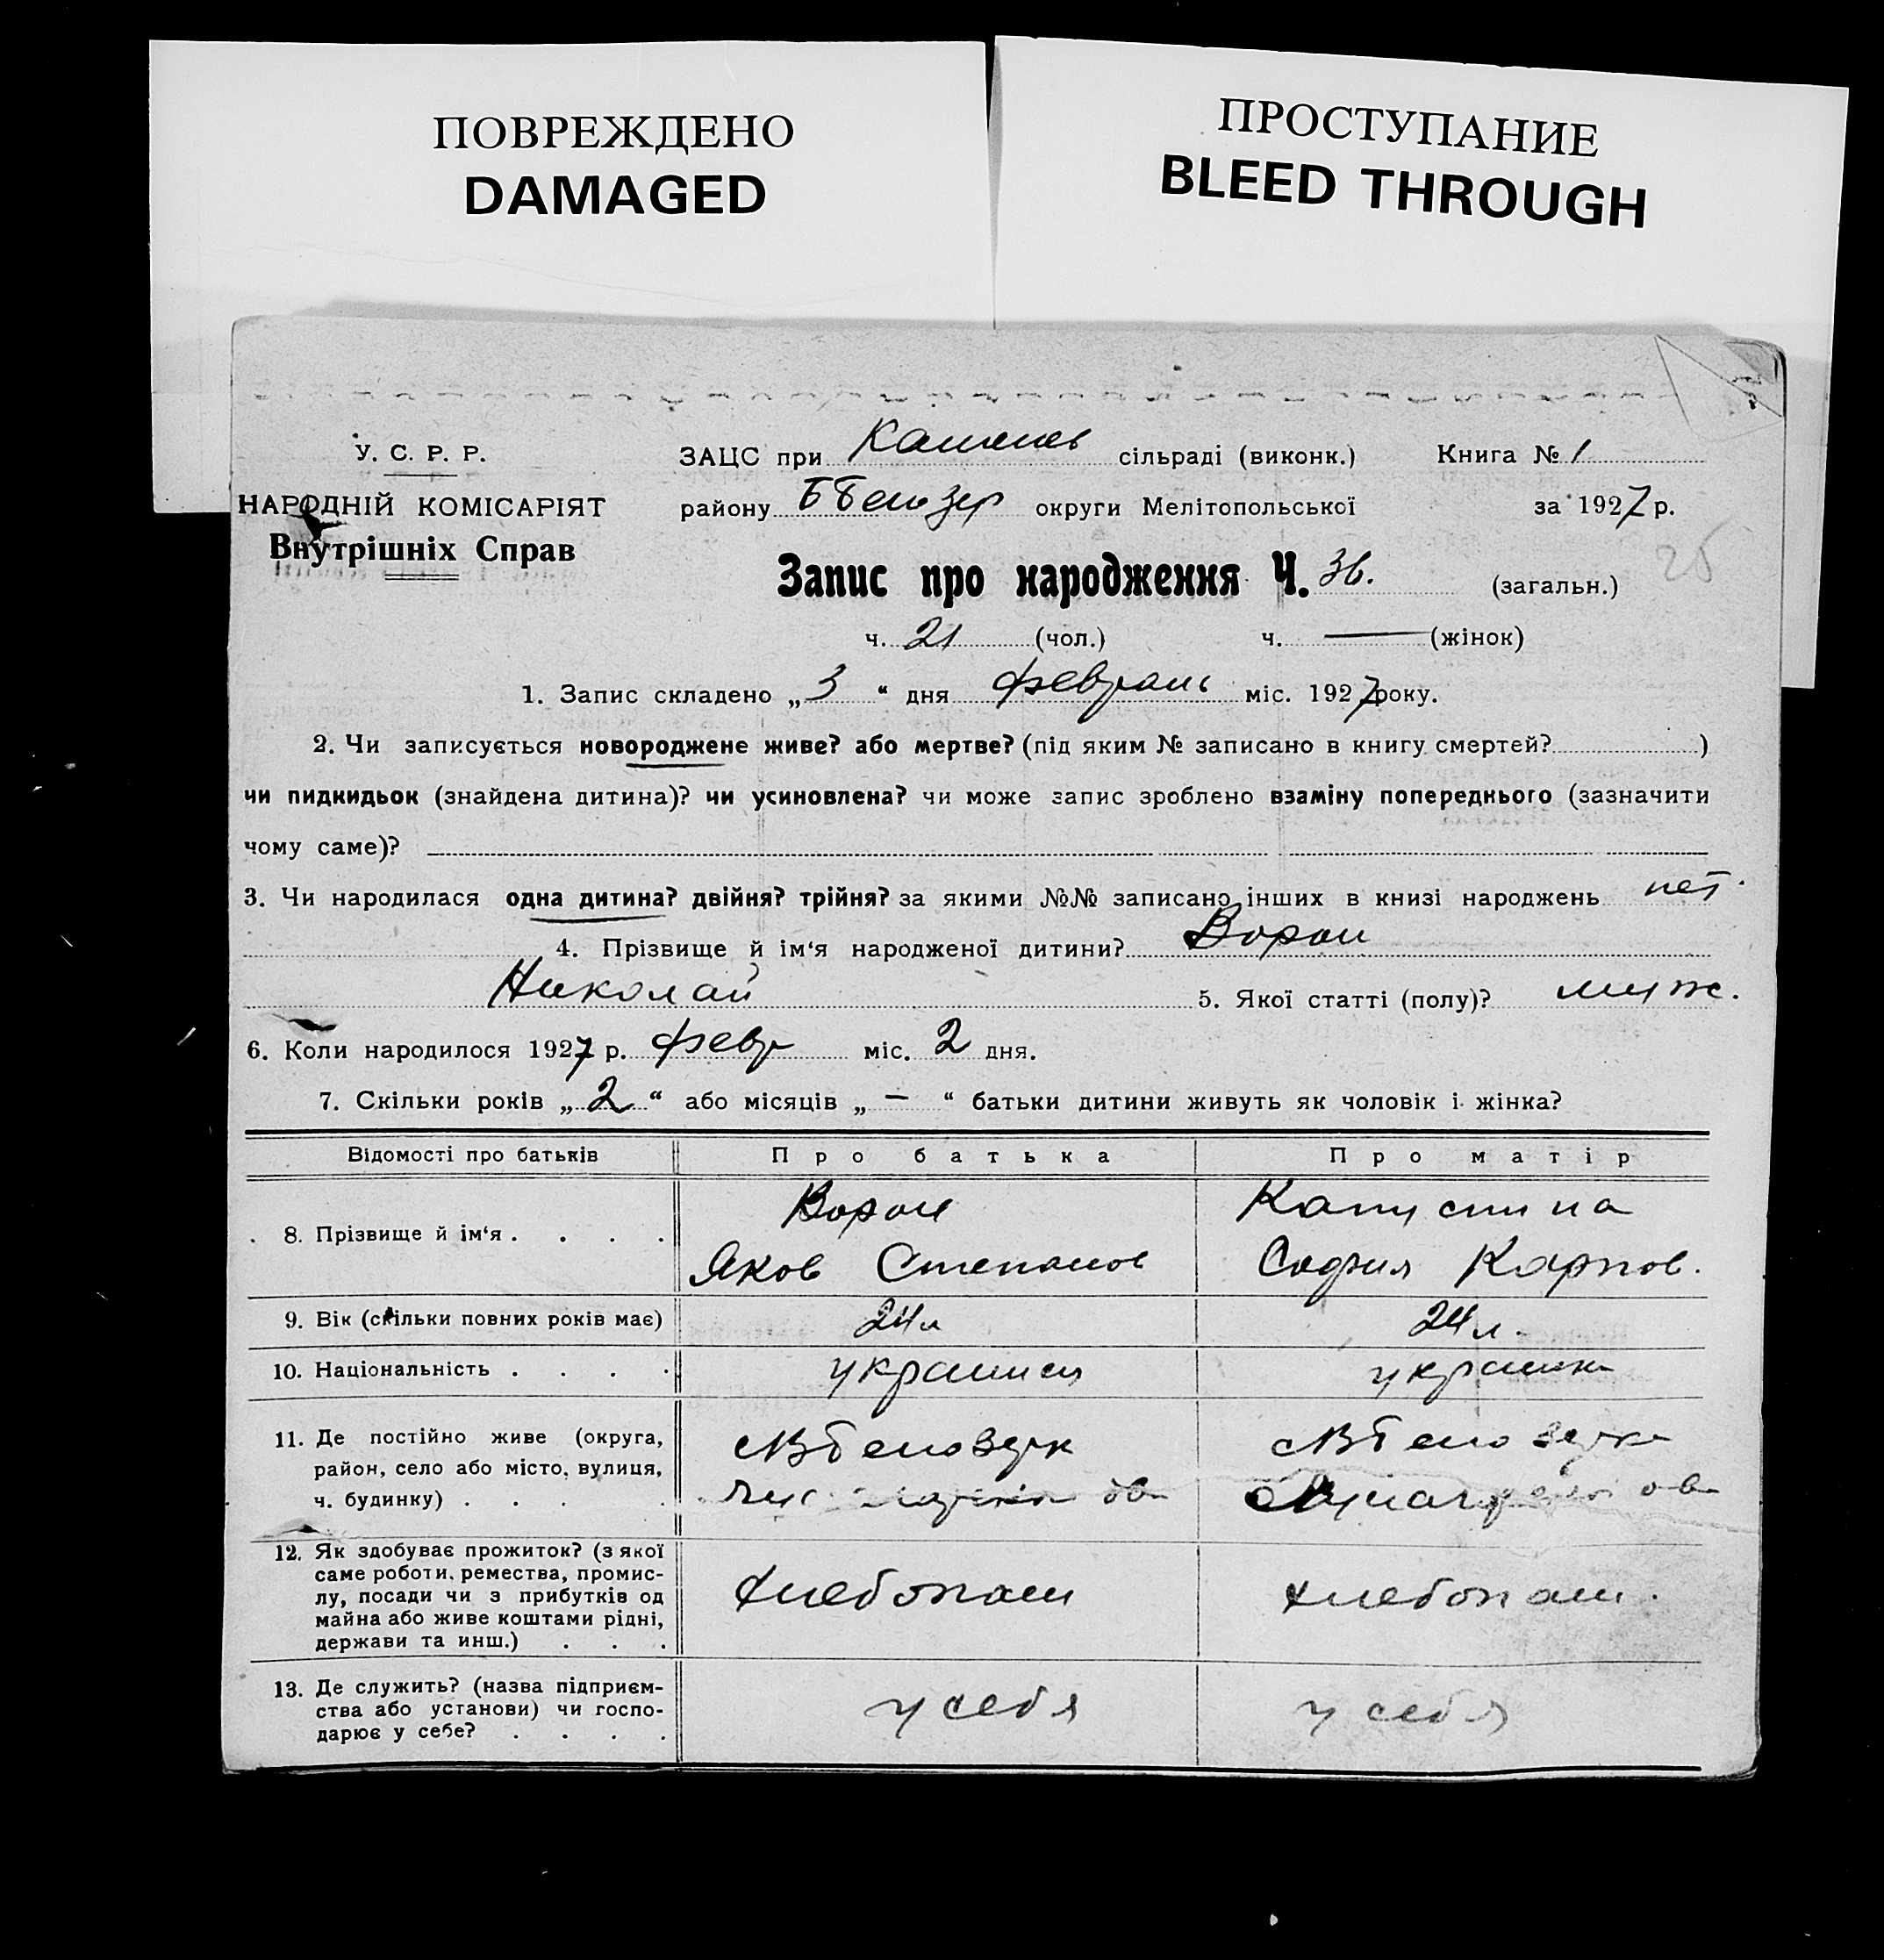 ПОВРЕЖДЕНО
DAMAGED
ПРОСТУПАНИЕ
BLEED THROUGH
У. С. Р. Р.
НАРОДНІЙ КОМІСАРІЯТ
Внутрішніх Справ
ЗАЦС при сільраді (виконк.) Книга № 1
району округи Мелітопольської за 1927 р.
Запис про народження Ч. 36. (загальн.)
25
ч. 21 (чол.) ч. — (жінок)
1. Запис складено „ 3 “ дня февраль міс. 1927 року.
2. Чи записується новороджене живе? або мертве? (під яким № записано в книгу смертей? )
чи пидкидьок (знайдена дитина)? чи усиновлена? чи може запис зроблено взаміну попереднього (зазначити
чому саме)?
3. Чи народилася одна дитина? двійня? трійня? за якими №№ записано інших в книзі народжень нет
4. Прізвище й ім‘я народженої дитини? Ворон
Николай 5. Якої статті (полу)? муж.
6. Коли народилося 1927 р. февр міс. 2 дня.
7. Скільки років „ 2 “ або місяців „ — “ батьки дитини живуть як чоловік і жінка?
Відомості про батьків Про батька Про матір
8. Прізвище й ім‘я . . . . Ворон Капустина
Яков Степанов София Карпов.
9. Вік (скільки повних років має) 24 л 24 л.
10. Національність . . . . украинец украинка
11. Де постійно живе (округа,
район, село або місто, вулиця,
ч. будинку) . . . .
12. Як здобуває прожиток? (з якої
саме роботи, ремества, промис-
лу, посади чи з прибутків од
майна або живе коштами рідні,
держави та инш.) . . .
хлебопаш хлебопаш.
13. Де служить? (назва підприєм-
ства або установи) чи госпо-
дарює у себе? . . . .
у себя у себя